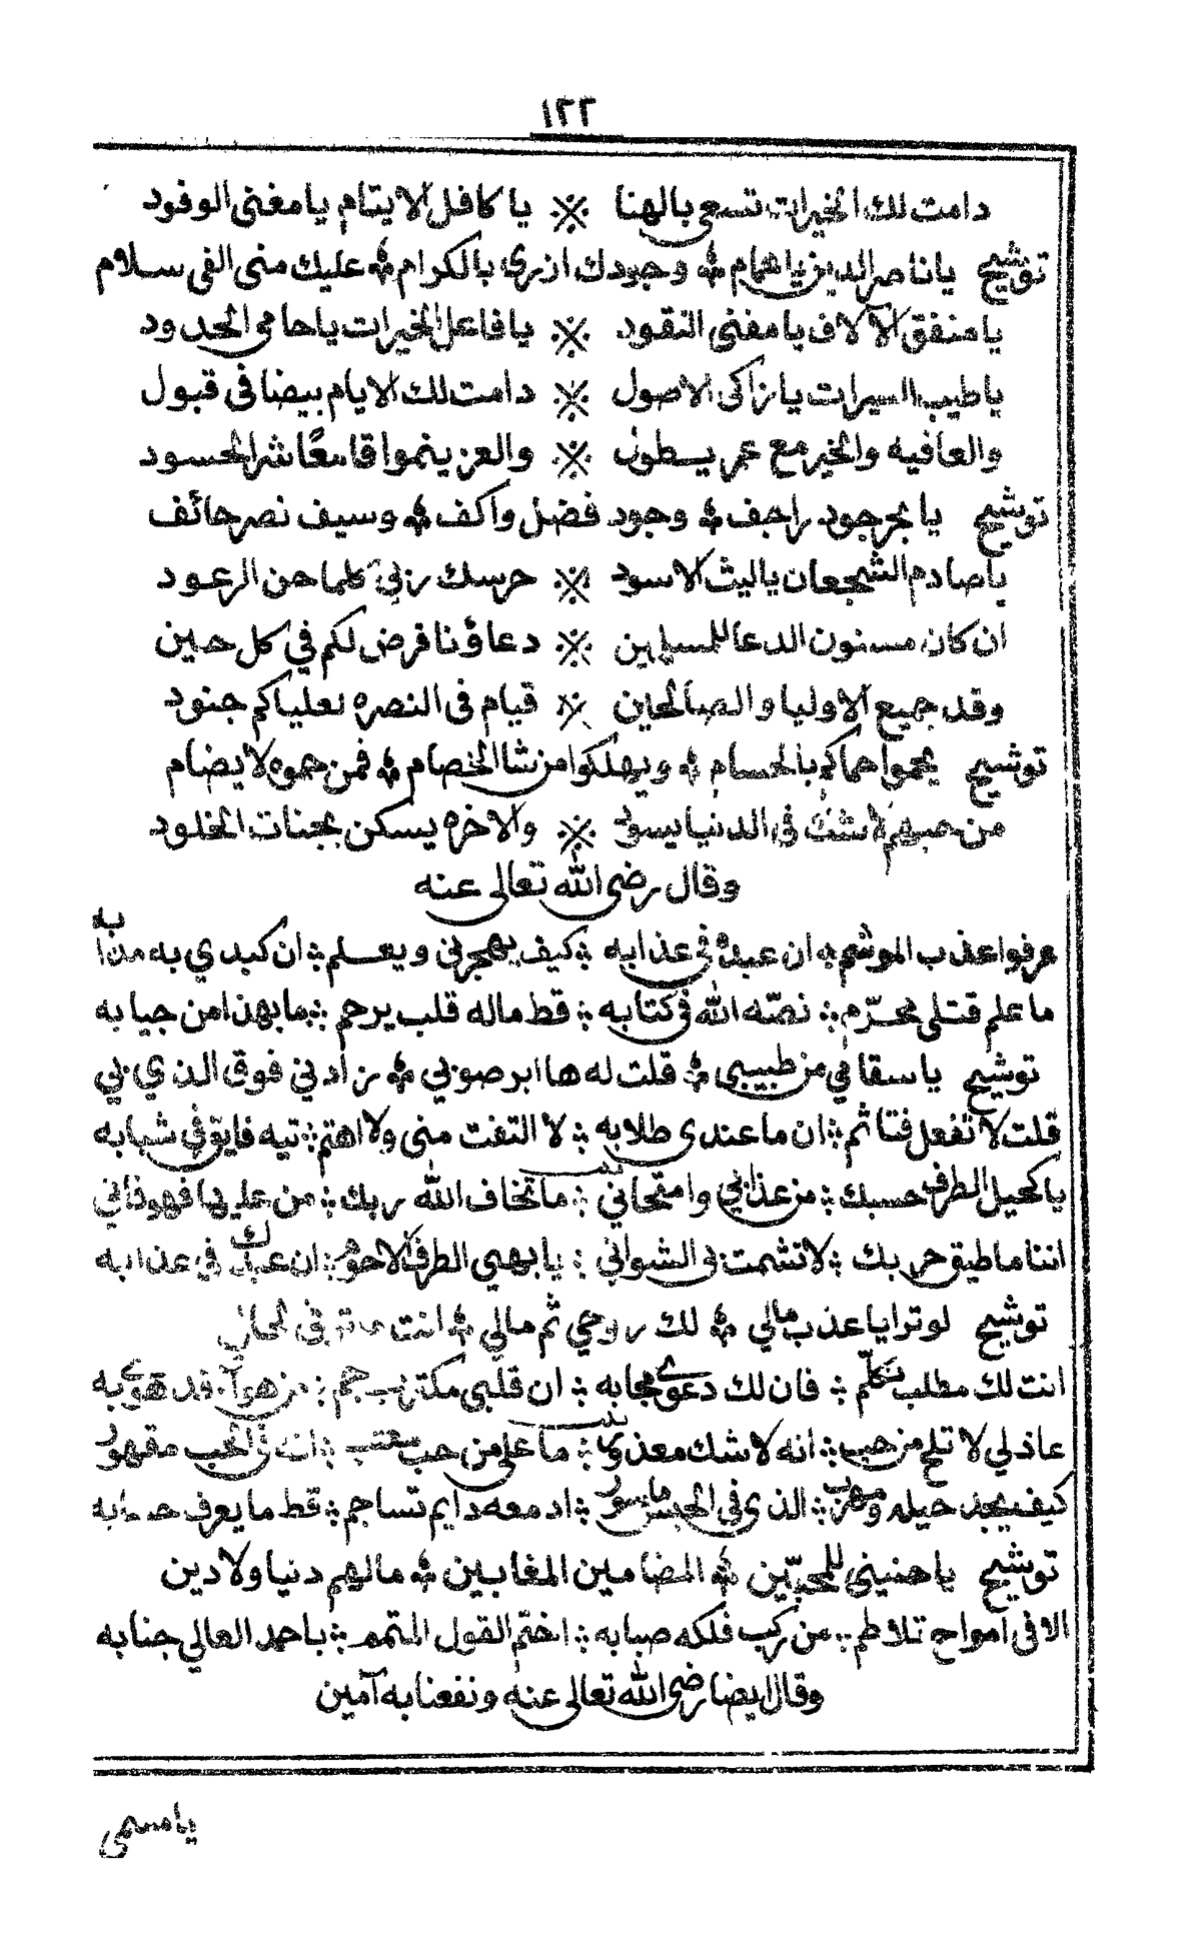 ١٢٢
دامت لك الخيرات تسعى بالهنا ※ يا كافل الايتام يا مغنى الوفود
توشيح يا ناصر الدين يا همام ❊ وجودك ازرى بالكرام ❊ عليك منى الفى سلام
يا منفق الآلاف يا مفنى النقود ※ يا فاعل الخيرات يا حامى الحدود
يا طيب السيرات يا زاكى الاصول ※ دامت لك الايام بيضا فى قبول
والعافيه والخير مع عمر يطول ※ والعز ينموا قامعًا شر الحسود
توشيح يا بحر جود راجف ❊ وجود فضل واكف ❊ وسيف نصر حائف
يا صادم الشجعان يا ليث الاسود ※ حرسك ربي كلما حن الرعود
ان كان مسنون الدعا للمسلمين ※ دعاؤنا فرض لكم في كل حين
وقد جميع الاوليا والصالحين ※ قيام فى النصره لعلياكم جنود
توشيح يحموا حماكم بالحسام ❊ ويهلكوا من شا الخصام ❊ فمن حموه لا يضام
من حبهم لا شك فى الدنيا يسود ※ والاخره يسكن بجنات الخلود
وقال رضى الله تعالى عنه
عرفوا عذب الموشم ؞ ان عبده في عذابه ؞ كيف يهجرني ويعلم ؞ ان كبدي به مذابه
ما علم قتلى محرّم ؞ نصّه الله في كتابه ؞ قط ماله قلب يرحم ؞ ما بهذا من جيابه
توشيح يا سقامي من طبيبي ❊ قلت له ها ابر صوبي ❊ زادني فوق الذي بي
قلت لا تفعل فتاثم ؞ ان ما عندى طلابه ؞ لا التفت منى ولا اهتم ؞ تيه فايق في شبابه
يا كحيل الطرف حسبك ؞ من عذابي وامتحاني ؞ ما تخاف الله ربك ؞ من عليها فهو فاني
اننا ما طيق حربك ؞ لا تشمت بى الشواني ؞ يا بهي الطرف الاحور ؞ ان عبدك في عذابه
توشيح لو ترايا عذب مالي ❊ لك روحي ثم مالي ❊ انت في
انت لك مطلب تكلّم ؞ فان لك دعوى مجابه ؞ ان قلبي ؞ من هواك قد هوى به
عاذلي لا تلح من حب ؞ انه لا شك معذور ؞ ما على من حب ؞ الحب مقهور
كيف يجد حيله ؞ الذى في الحب ؞ ادمعه دايم تساجم ؞ قط ما يعرف
توشيح يا حنيني للمحبّين ❊ المضامين المغابين ❊ مالهم دنيا ولا دين
الا فى امواج تلاطم ؞ من ركب فلكه صبابه ؞ اختم القول المتمم ؞ باحمد العالي جنابه
وقال ايضا رضى الله تعالى عنه ونفعنا به آمين
يا مسمى